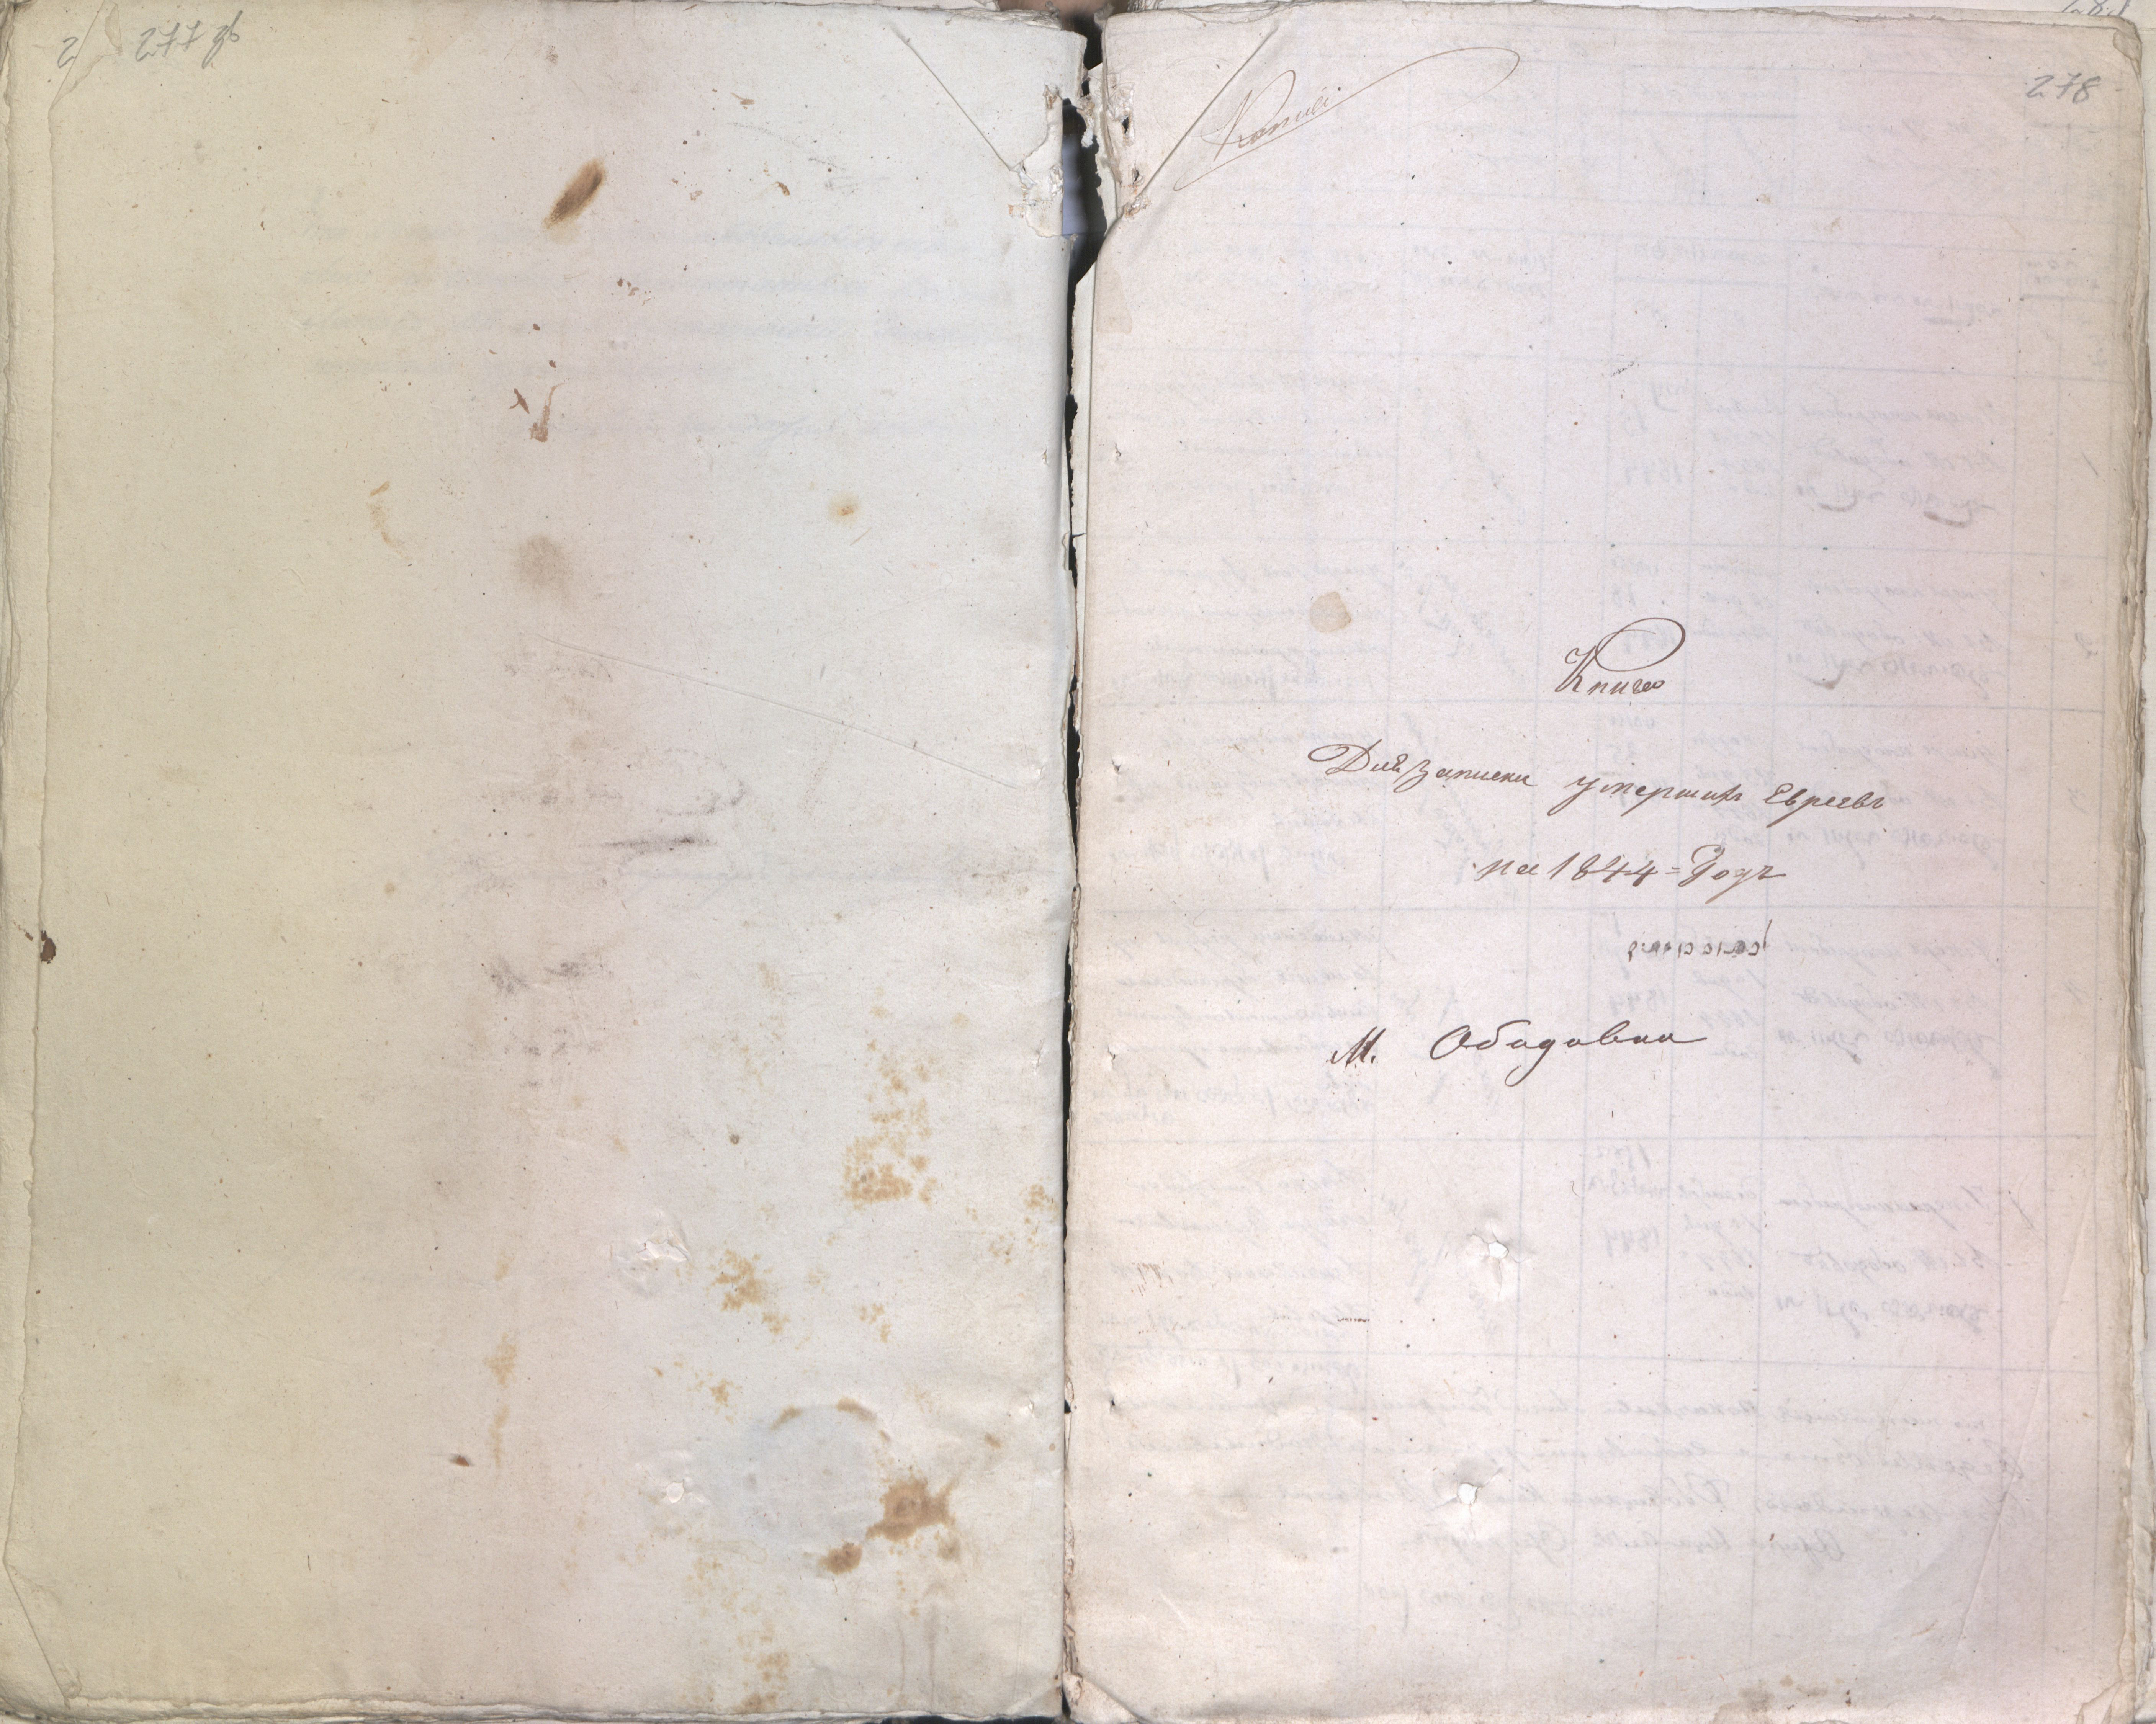 277 об
278
Копия
Книга
Для записки умершихъ Евреевъ
на 1844 = Годъ
М. Ободовка